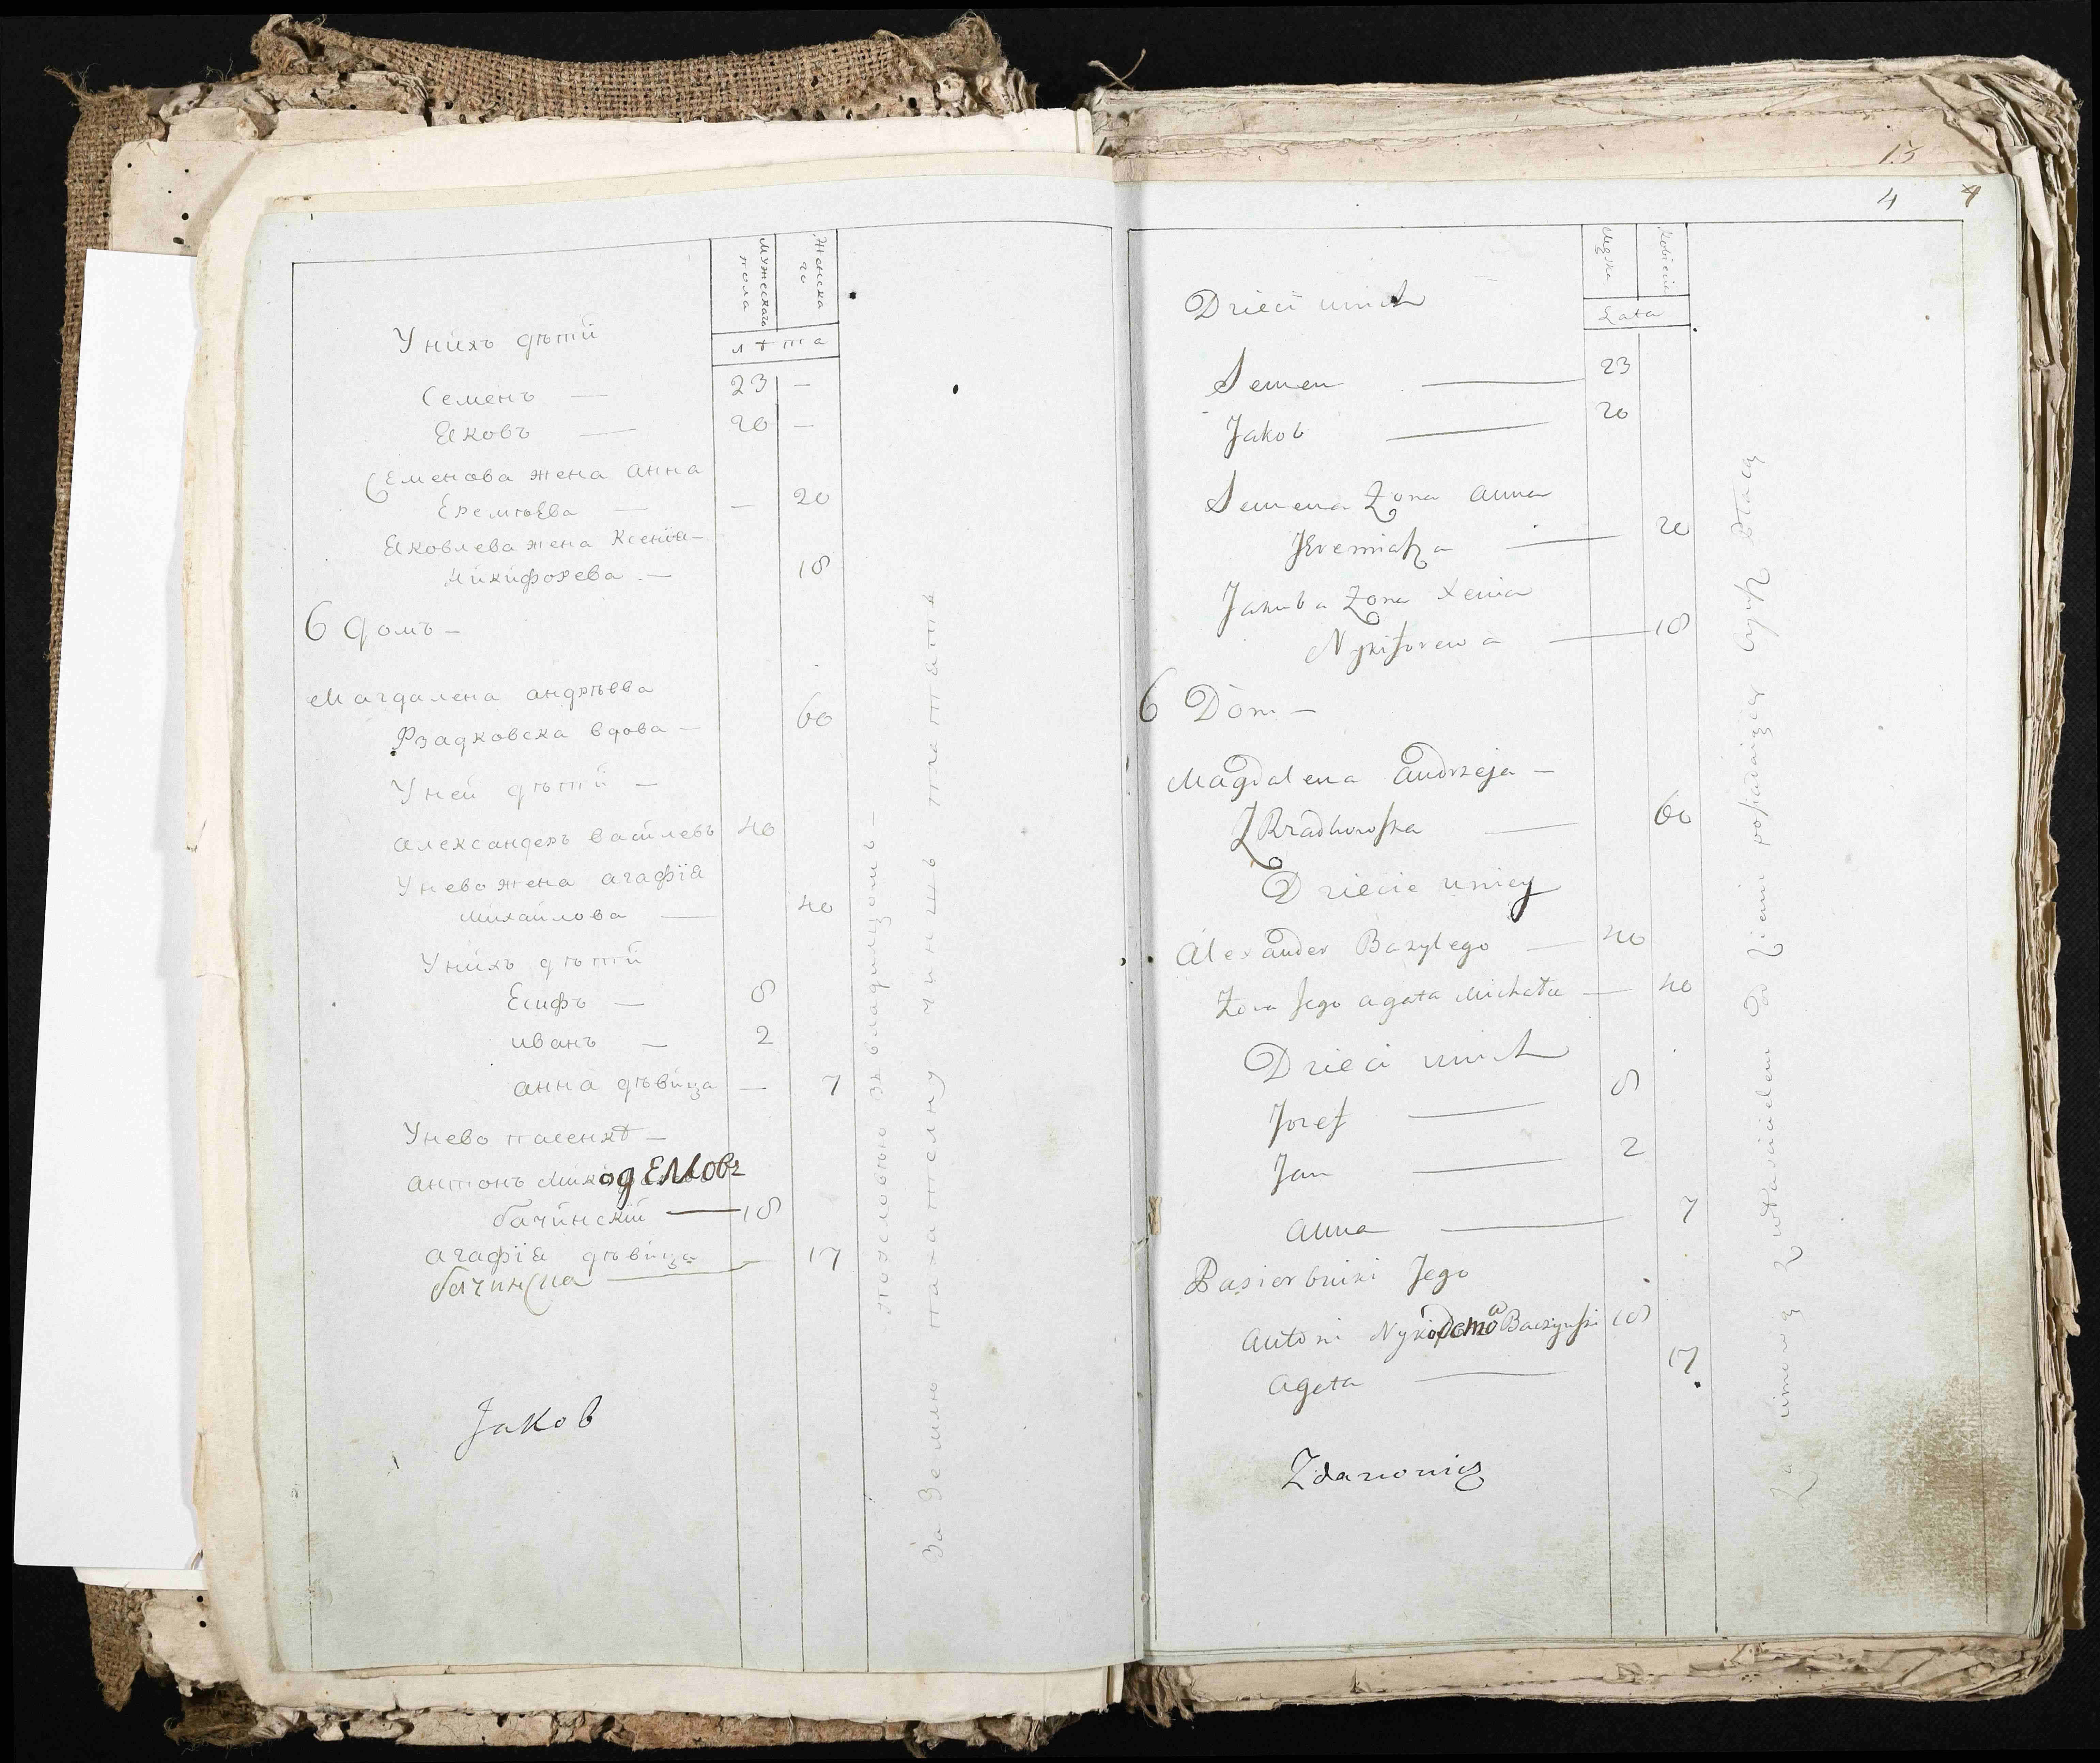 мужескаго
пола
женска
го
лѣта
Унихъ дѣти
Семенъ — 23 —
Яковъ — 20 —
Семенова жена анна
Еремѣева — — 20
Яковлева жена Ксенія —
Никифорева — 18
6 домъ —
Магдалена андрѣева
Рзадковска вдова — 60
Уней дѣти —
александеръ василевъ 40
Унево жена агафія
Михаилова — 40
Унихъ дѣти
Есифъ — 8
иванъ — 2
анна дѣвица — 7
Унево пасенкѣ —
антонъ Никодемовъ
бачинский — 18
агафія дѣвица — 17
бачинска
Jakob
за землю пахателну чиншъ платятъ
15
4
Męzka
Kobieca
Lata
Dzieci unich
Semen — 23
Jakob — 20
Semena Zona anna
Jeremiasza — 20
Jakuba Zona Xenia
Nykiforewa — 18
6 Dom —
Magdalena andrzeja —
Rzadkowska — 60
Dziecie uniey
Alexander Bazylego — 40
Zona Jego agata Michała — 40
Dzieci unich
Jozef — 8
Jan — 2
anna — 7
Pasierbniki Jego
Antoni Nykodema Baczynski 18
agata — 17
Zdanowicz